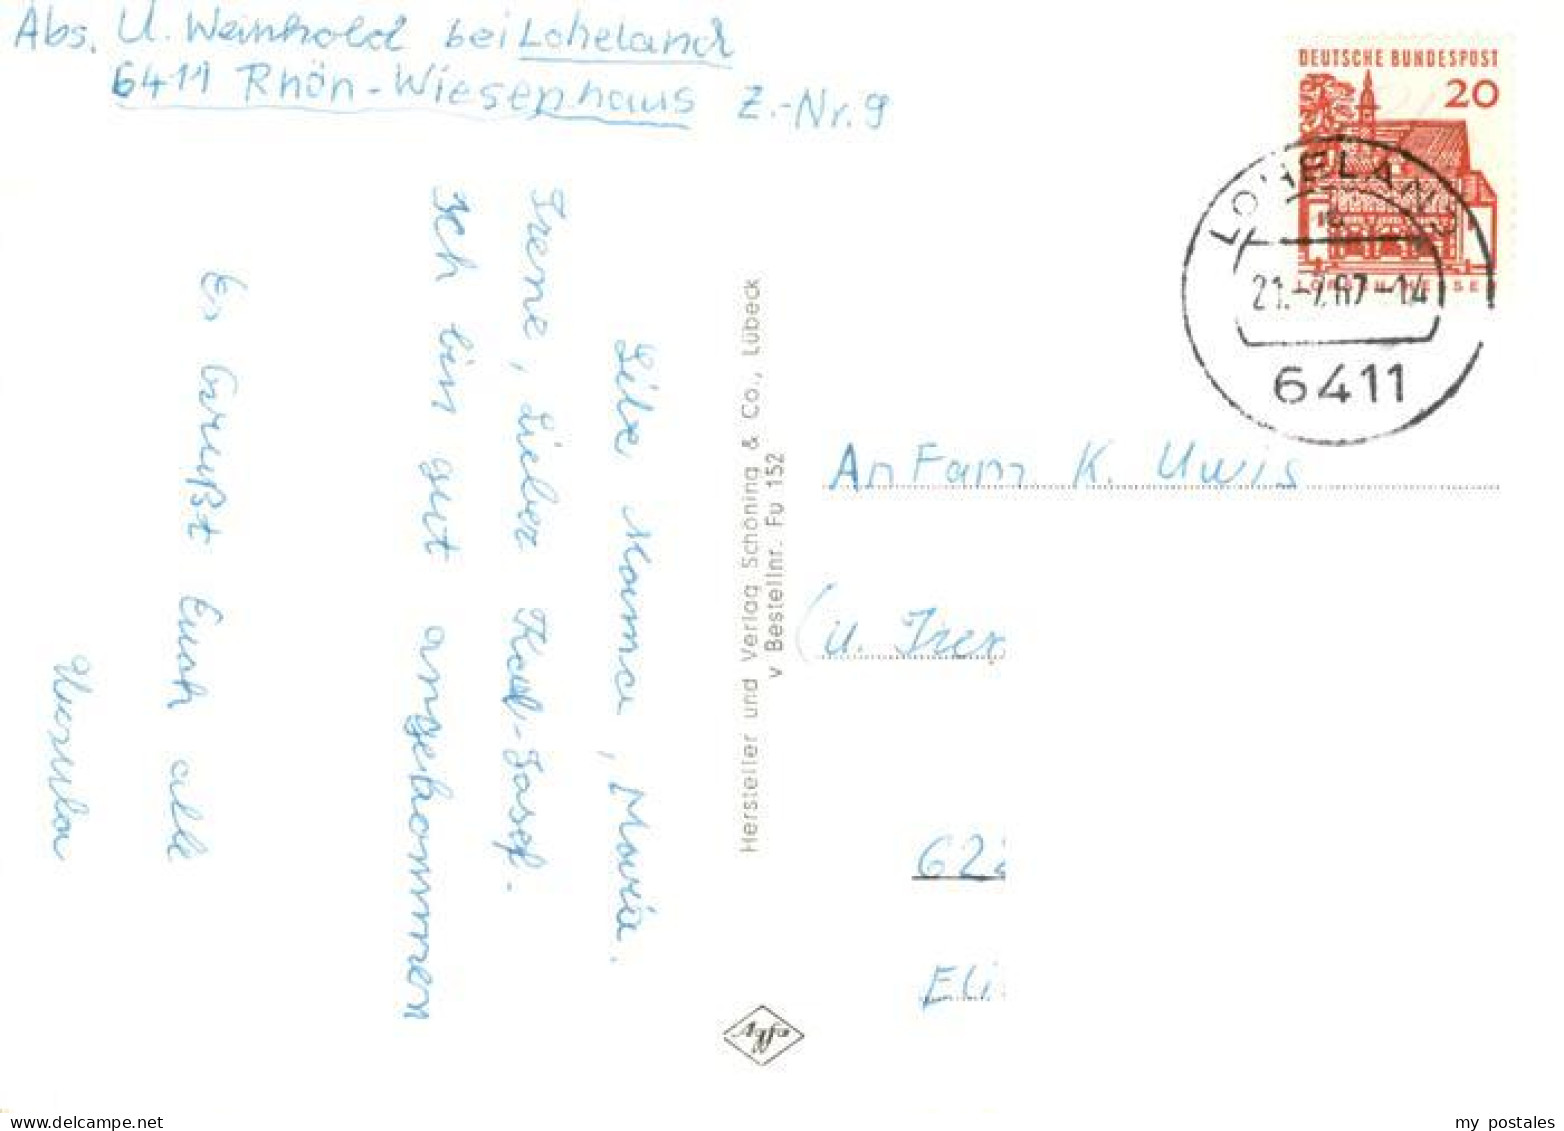 Abs. U. Weinhold bei Loheland
6411 Rhön-Wiesenhaus Z.-Nr. 9
DEUTSCHE BUNDESPOST
20
LORSCH/HESSEN
LOHELAND
21.-7.67-14
6411
Liebe Mama, Maria.
Irene, Lieber Karl-Josef.
Ich bin gut angekommen
Es Grüßt Euch alle
Ursula
Hersteller und Verlag Schöning & Co., Lübeck
v Bestellnr. Fu 152
An Fam K. Uwis
(u. Iren
622
Eli
Agfa
delcampe.net
my_postales